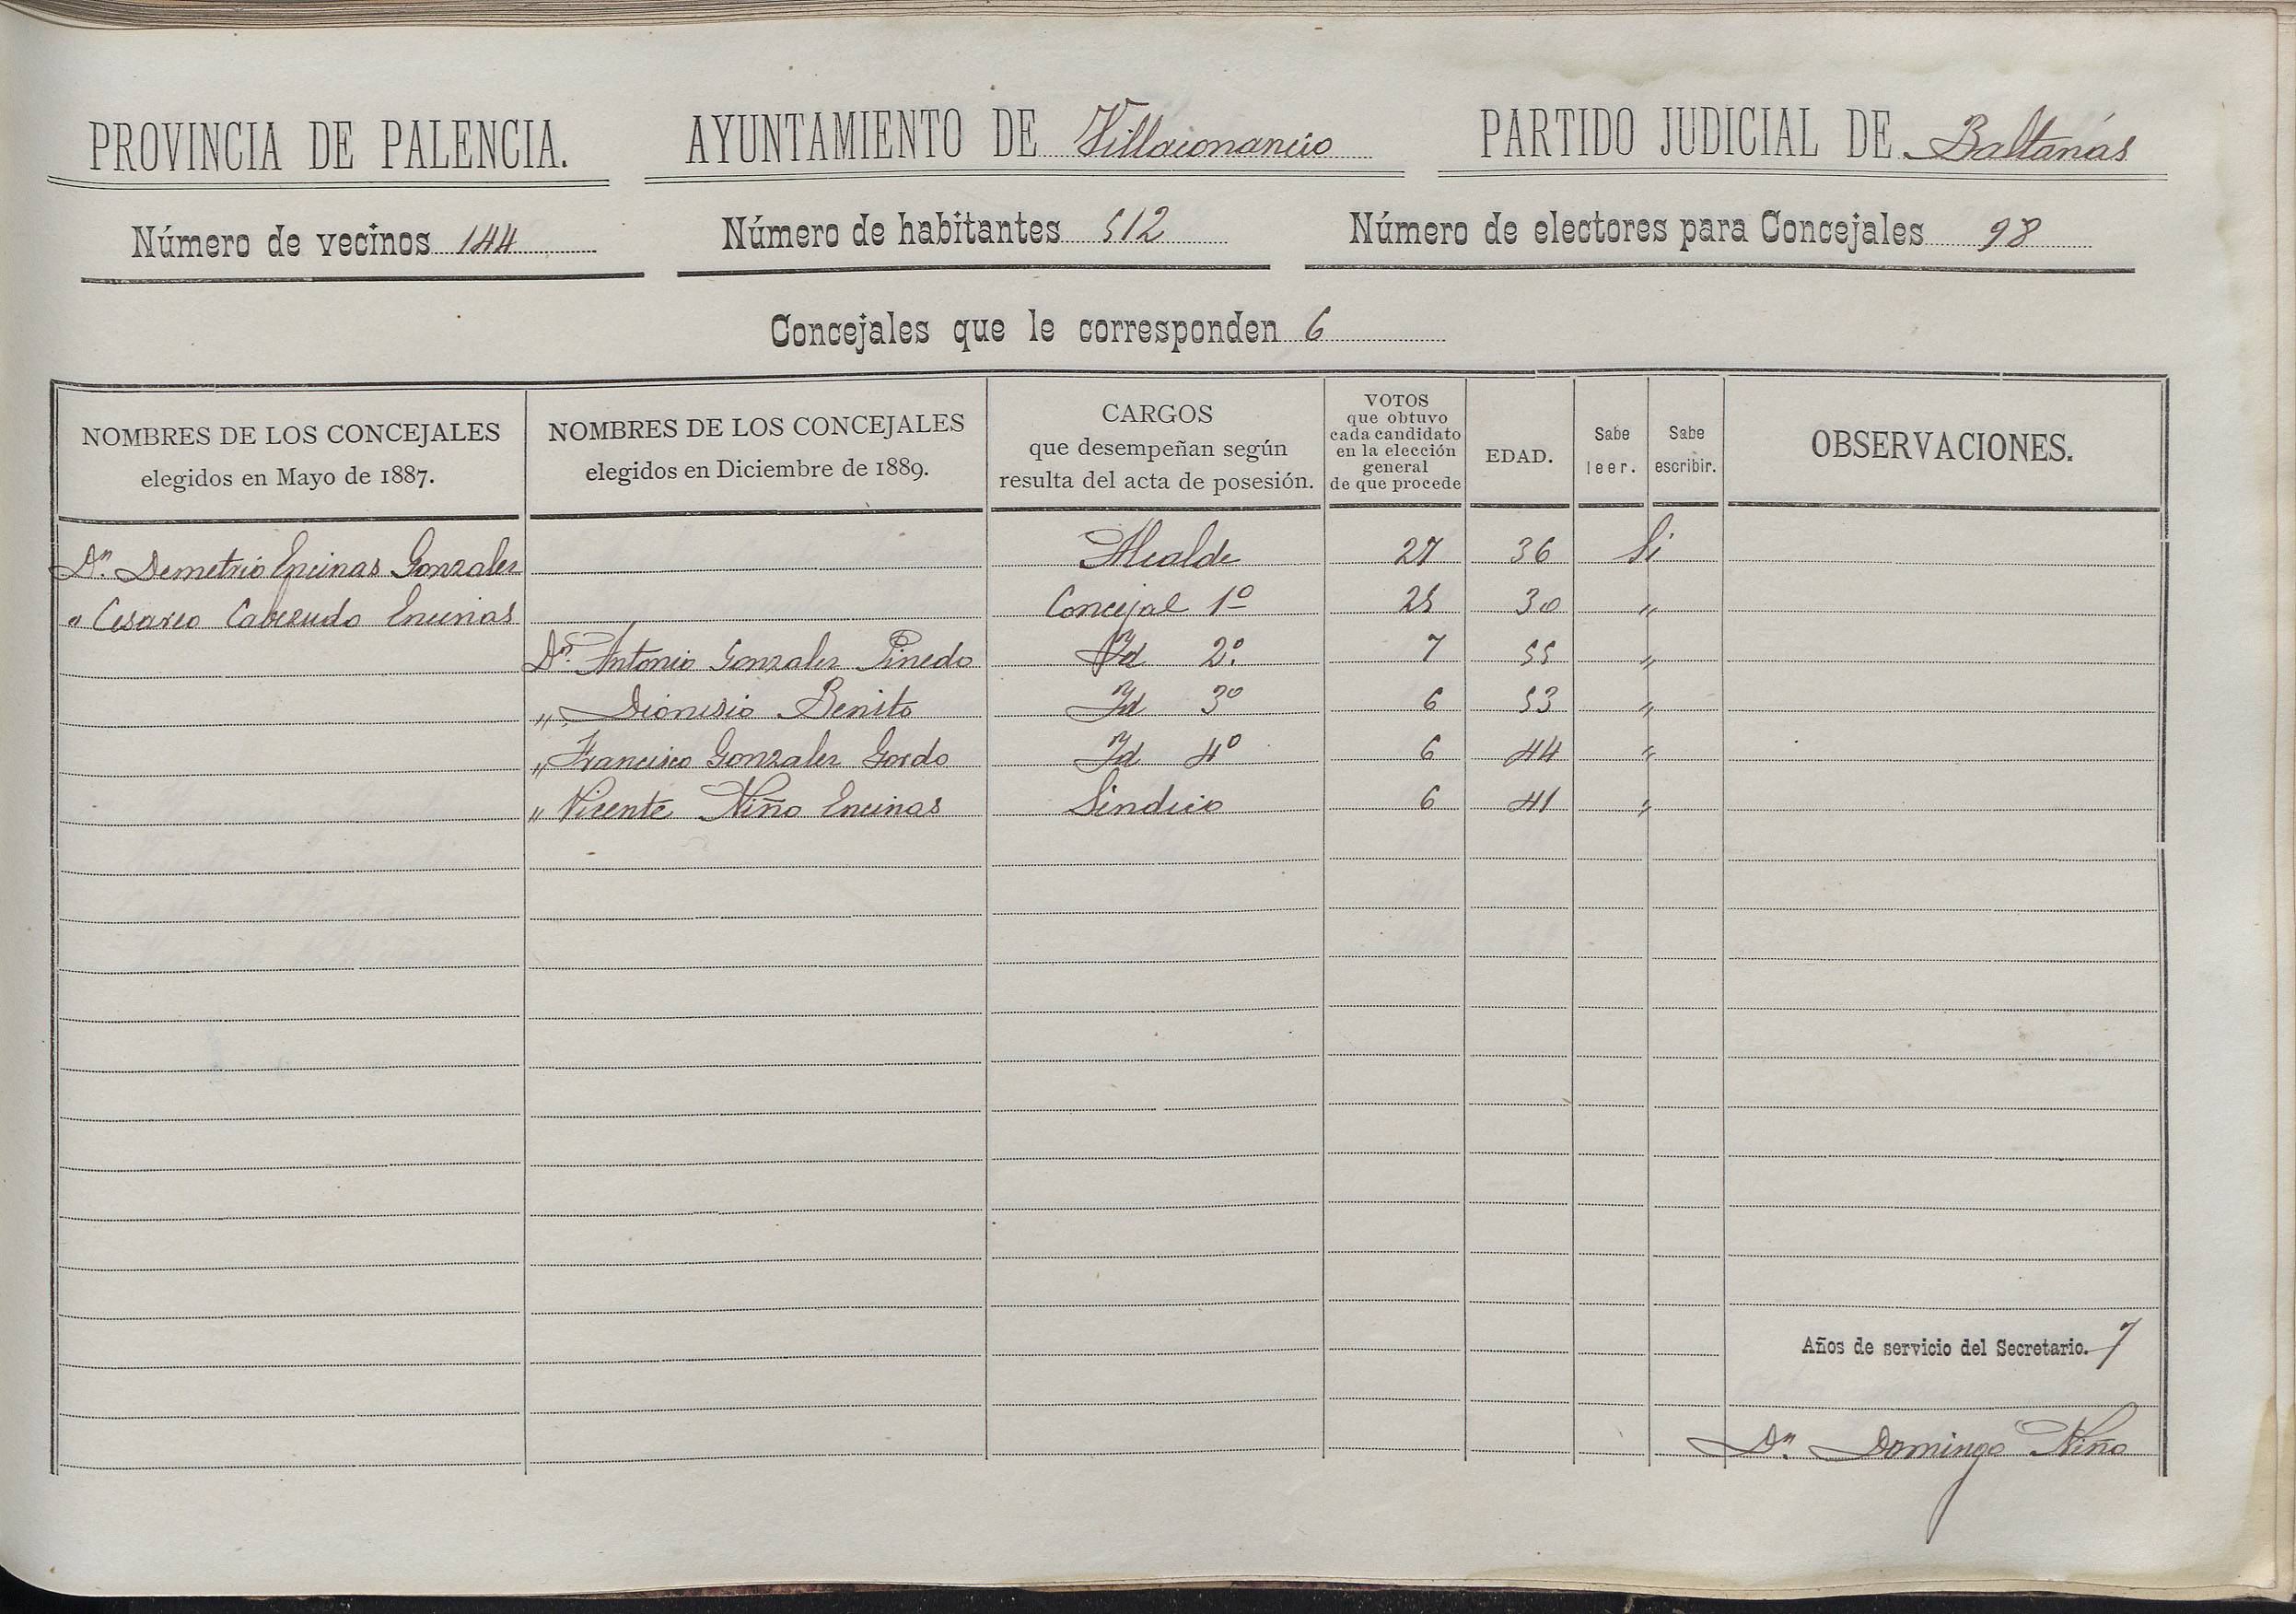 PROVINCIA DE PALENCIA. AYUNTAMIENTO DE Villaconancio PARTIDO JUDICIAL DE Baltanás
Número de vecinos 144 Número de habitantes 512 Número de electores para Concejales 98
Concejales que le corresponden 6
NOMBRES DE LOS CONCEJALES
elegidos en Mayo de 1887.
NOMBRES DE LOS CONCEJALES
elegidos en Diciembre de 1889.
CARGOS
que desempeñan según
resulta del acta de posesión.
VOTOS
que obtuvo
cada candidato
en la elección
general
de que procede
EDAD.
Sabe
leer.
Sabe
escribir.
OBSERVACIONES.
Dn. Demetrio Encinas Gonzalez Alcalde 27 36 Si
" Cesareo Cabezudo Encinas Concejal 1º 25 30 "
Dn. Antonio Gonzalez Pinedo Id 2º. 7 55 "
" Dionisio Benito Id 3º 6 53 "
" Francisco Gonzalez Gordo Id 4º 6 44 "
" Vicente Niño Encinas Sindico 6 41 "
Años de servicio del Secretario. 7
Dn. Domingo Niño